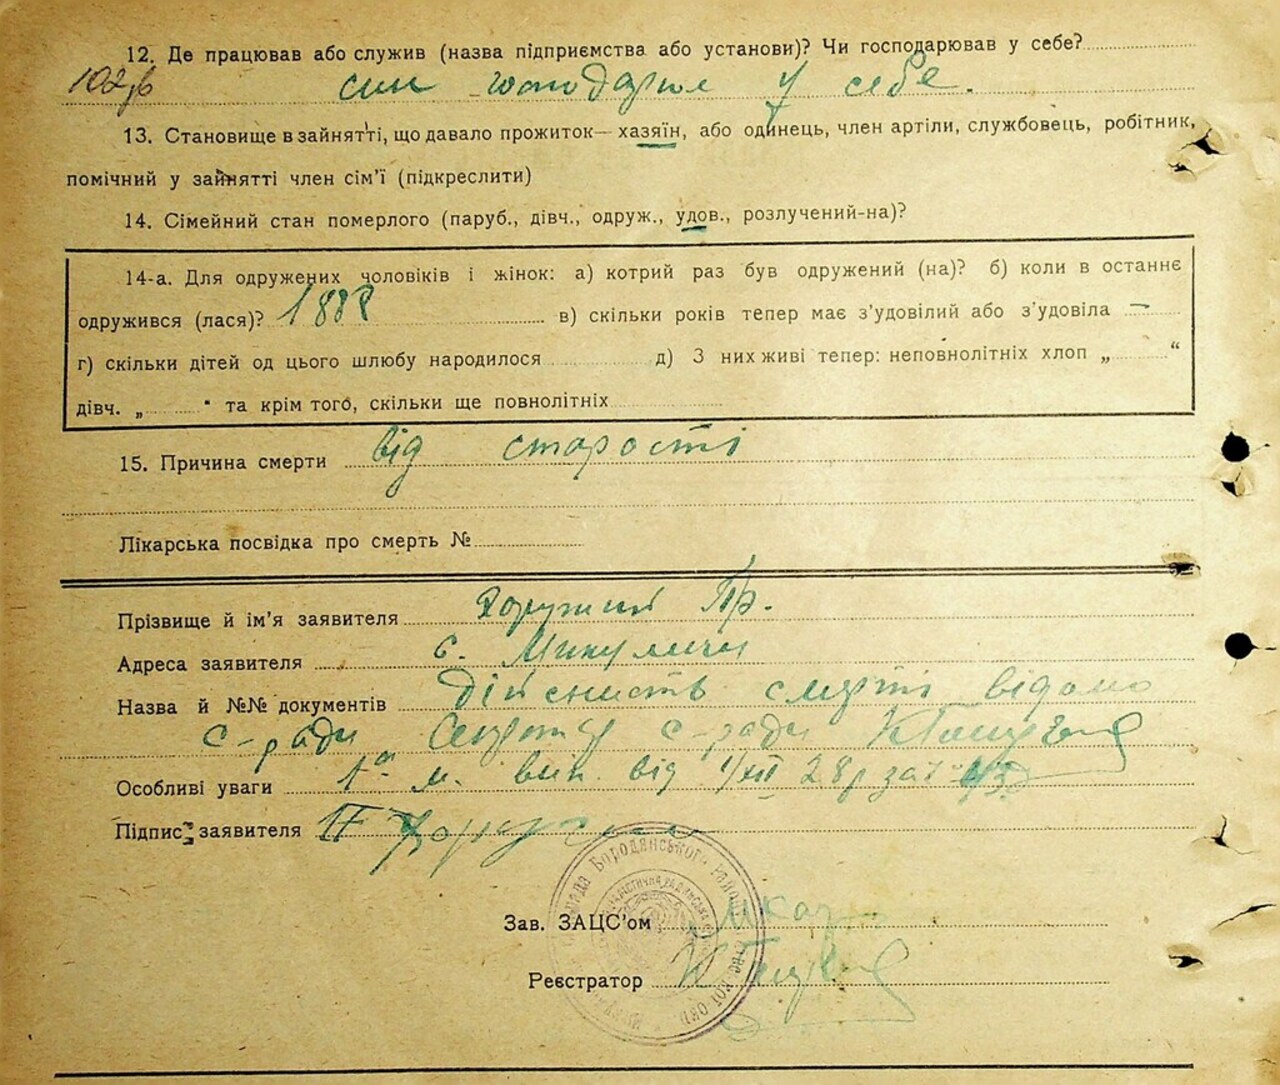 12. Де працював або служив (назва підприємства або установи)? Чи господарював у себе?
син господарює у себе.
13. Становище в зайнятті, що давало прожиток— хазяїн, або одинець, член артіли, службовець, робітник,
помічний у зайнятті член сім'ї (підкреслити)
14. Сімейний стан померлого (паруб., дівч., одруж., удов., розлучений-на)?
14-а. Для одружених чоловіків і жінок: а) котрий раз був одружений (на)? б) коли в останнє
одружився (лася)? 1888 в) скільки років тепер має з'удовілий або з'удовіла —
г) скільки дітей од цього шлюбу народилося д) З них живі тепер: неповнолітніх хлоп „ “
дівч. „ “ та крім того, скільки ще повнолітніх
15. Причина смерти від старости
Лікарська посвідка про смерть №
Прізвище й ім'я заявителя Пр.
Адреса заявителя с. Микуличи
Назва й №№ документів дійсність смерті відомо
с-ради Секретар с-ради
Особливі уваги
Підпис заявителя
Бородянського район
Зав. ЗАЦС'ом
Реєстратор